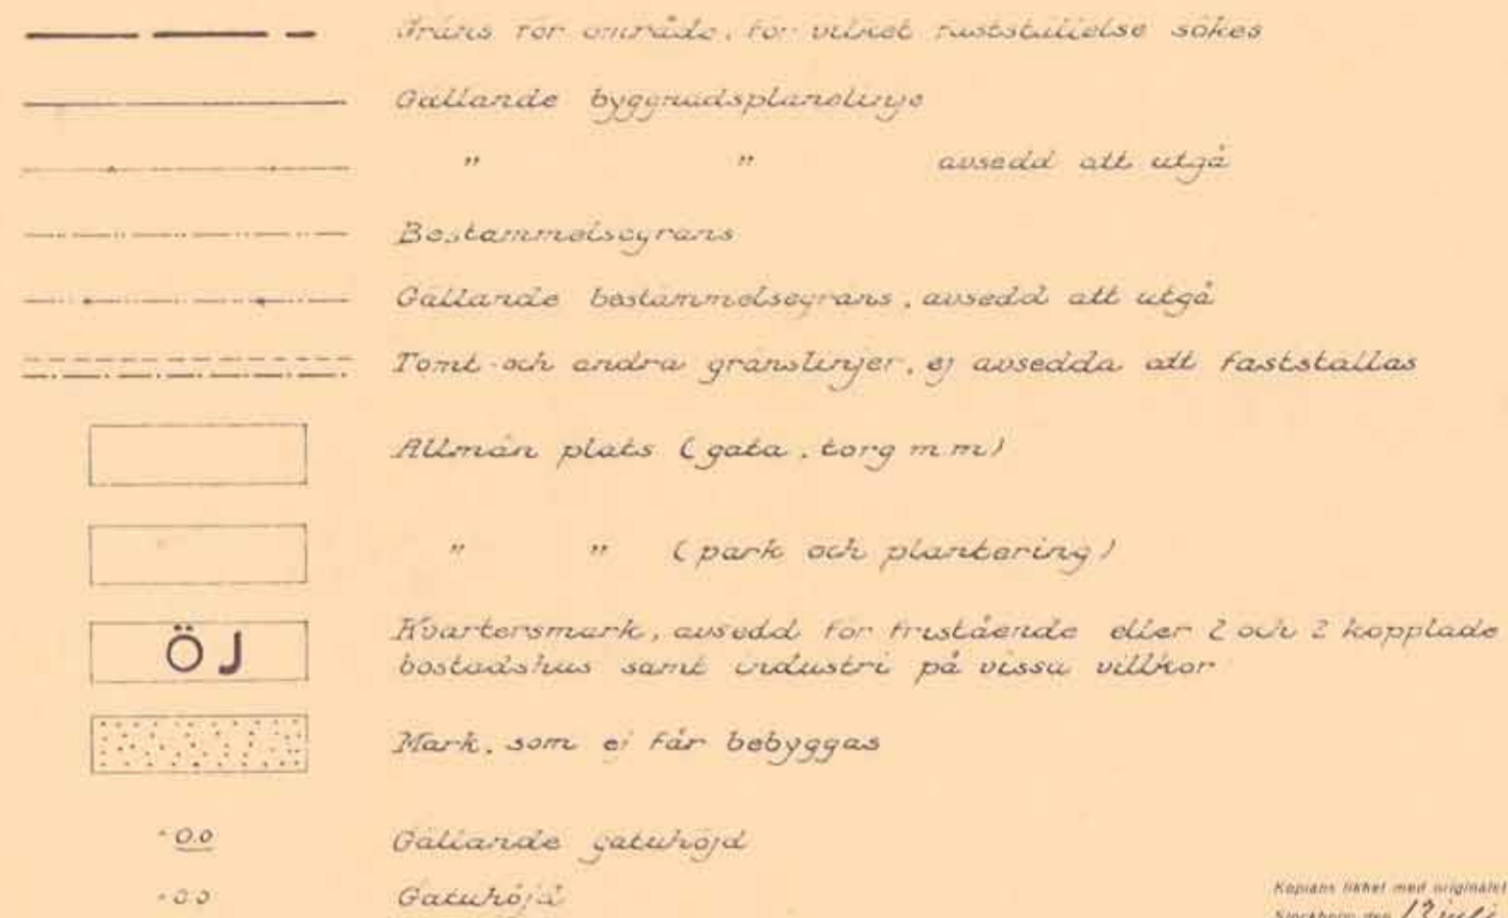 Gräns för område, för vilket fastställelse sökes
Gällande byggnadsplanelinje
" " avsedd att utgå
Bestämmelsegräns
Gällande bestämmelsegräns, avsedd att utgå
Tomt- och andra gränslinjer, ej avsedda att fastställas
Allmän plats (gata, torg m.m)
" " (park och plantering)
ÖJ
Kvartersmark, avsedd för fristående eller 2 och 2 kopplade
bostadshus samt industri på vissa villkor
Mark, som ej får bebyggas
0.0
Gällande gatuhöjd
0.0
Gatuhöjd
Kopians likhet med originalet
Stockholm den 12 juli